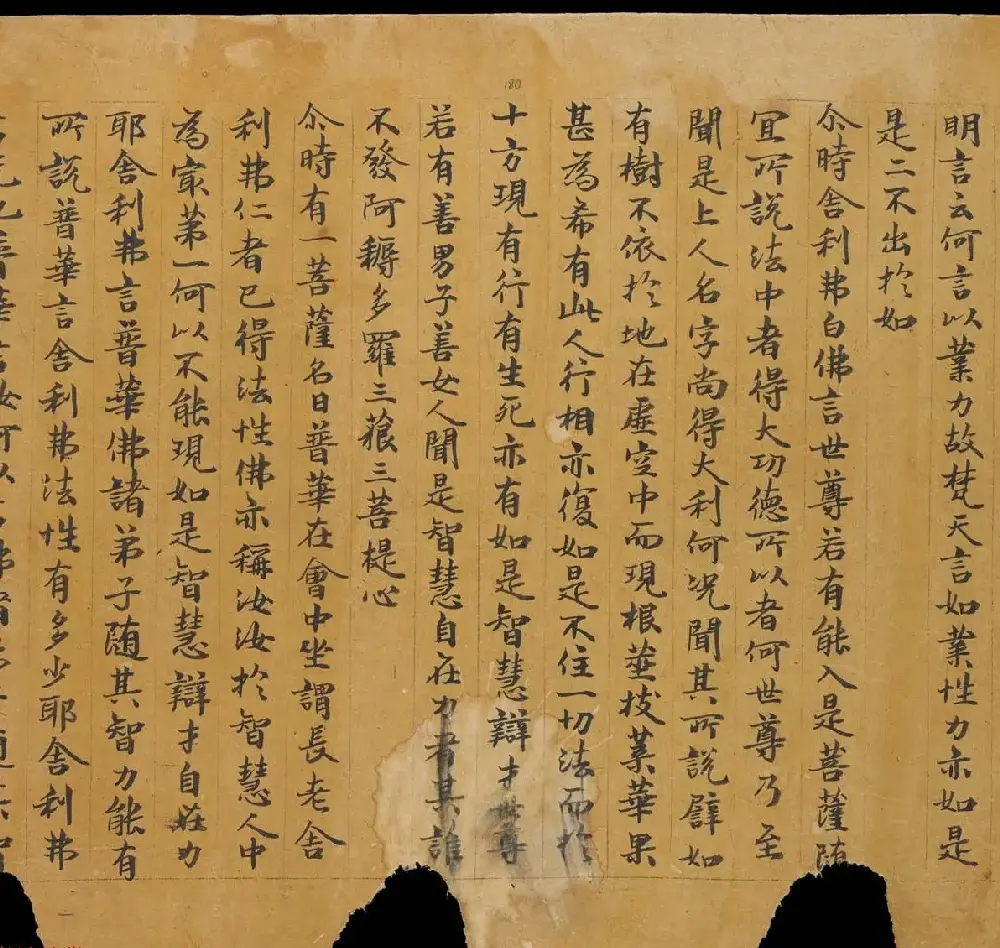 明言云何言以業力故梵天言如業性力亦如是
是二不出於如
尒時舍利弗白佛言世尊若有能入是菩薩随
冝所說法中者得大功德所以者何世尊乃至
聞是上人名字尚得大利何况聞其所說辟如
有樹不依於地在虛空中而現根莖枝葉華果
甚為希有此人行相亦復如是不住一切法而於
十方現有行有生死亦有如是智慧辯才世尊
若有善男子善女人聞是智慧自在力者其誰
不發阿耨多羅三藐三菩提心
尒時有一菩薩名曰普華在會中坐謂長老舍
利弗仁者已得法性佛亦稱汝汝於智慧人中
為冣第一何以不能現如是智慧辯才自在力
耶舍利弗言普華佛諸弟子随其智力能有
所說普華言舍利弗法性有多少耶舍利弗